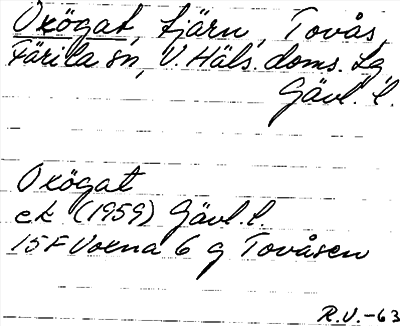 Oxögat, tjärn, Tovås,
Färila sn, V. Häls. doms. lg
Gävl. l.
Oxögat
ek (1959) Gävl. l
15F Voxna 6 g Tovåsen
R.V.-63